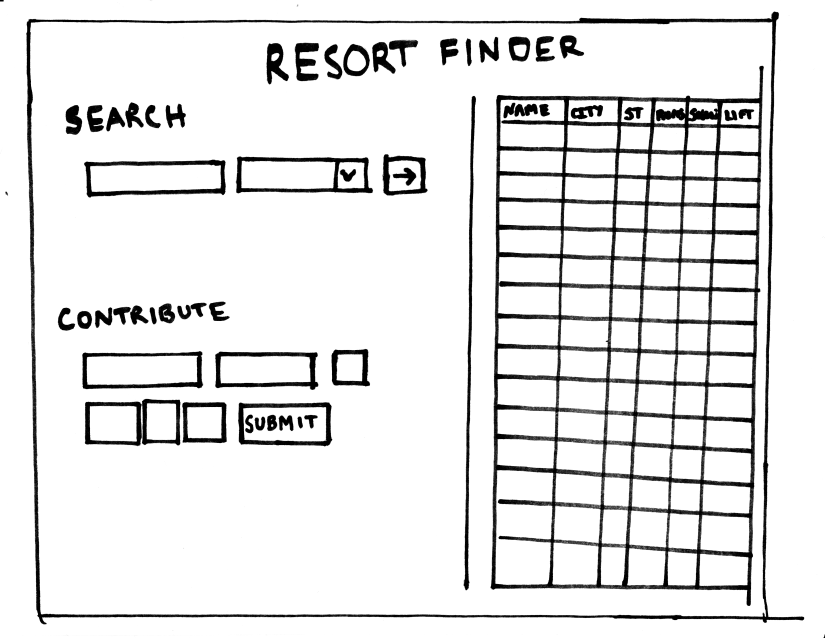 RESORT FINDER
SEARCH
CONTRIBUTE
SUBMIT
NAME CITY ST LIFT